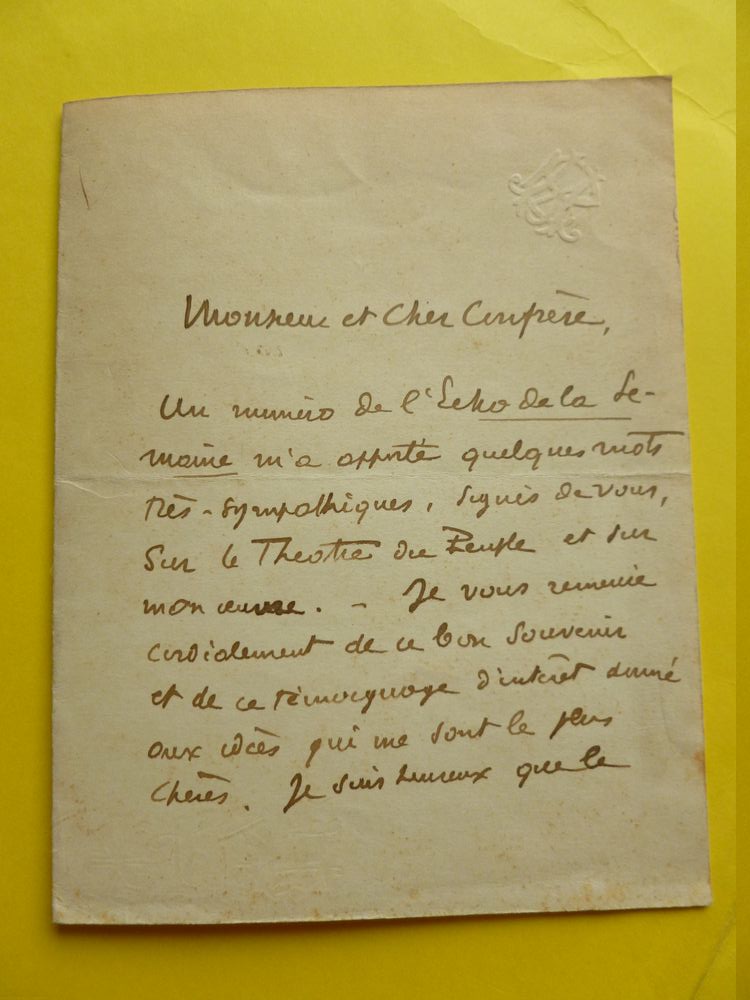 Monsieur et Cher Confrère,
Un numéro de l'Echo de la Se-
maine m'a apporté quelques mots
très-sympathiques, signés de vous,
sur le Théâtre du Peuple et sur
mon œuvre. - Je vous remercie
cordialement de ce bon souvenir
et de ce témoignage d'intérêt donné
aux idées qui me sont le plus
chères. Je suis heureux que le